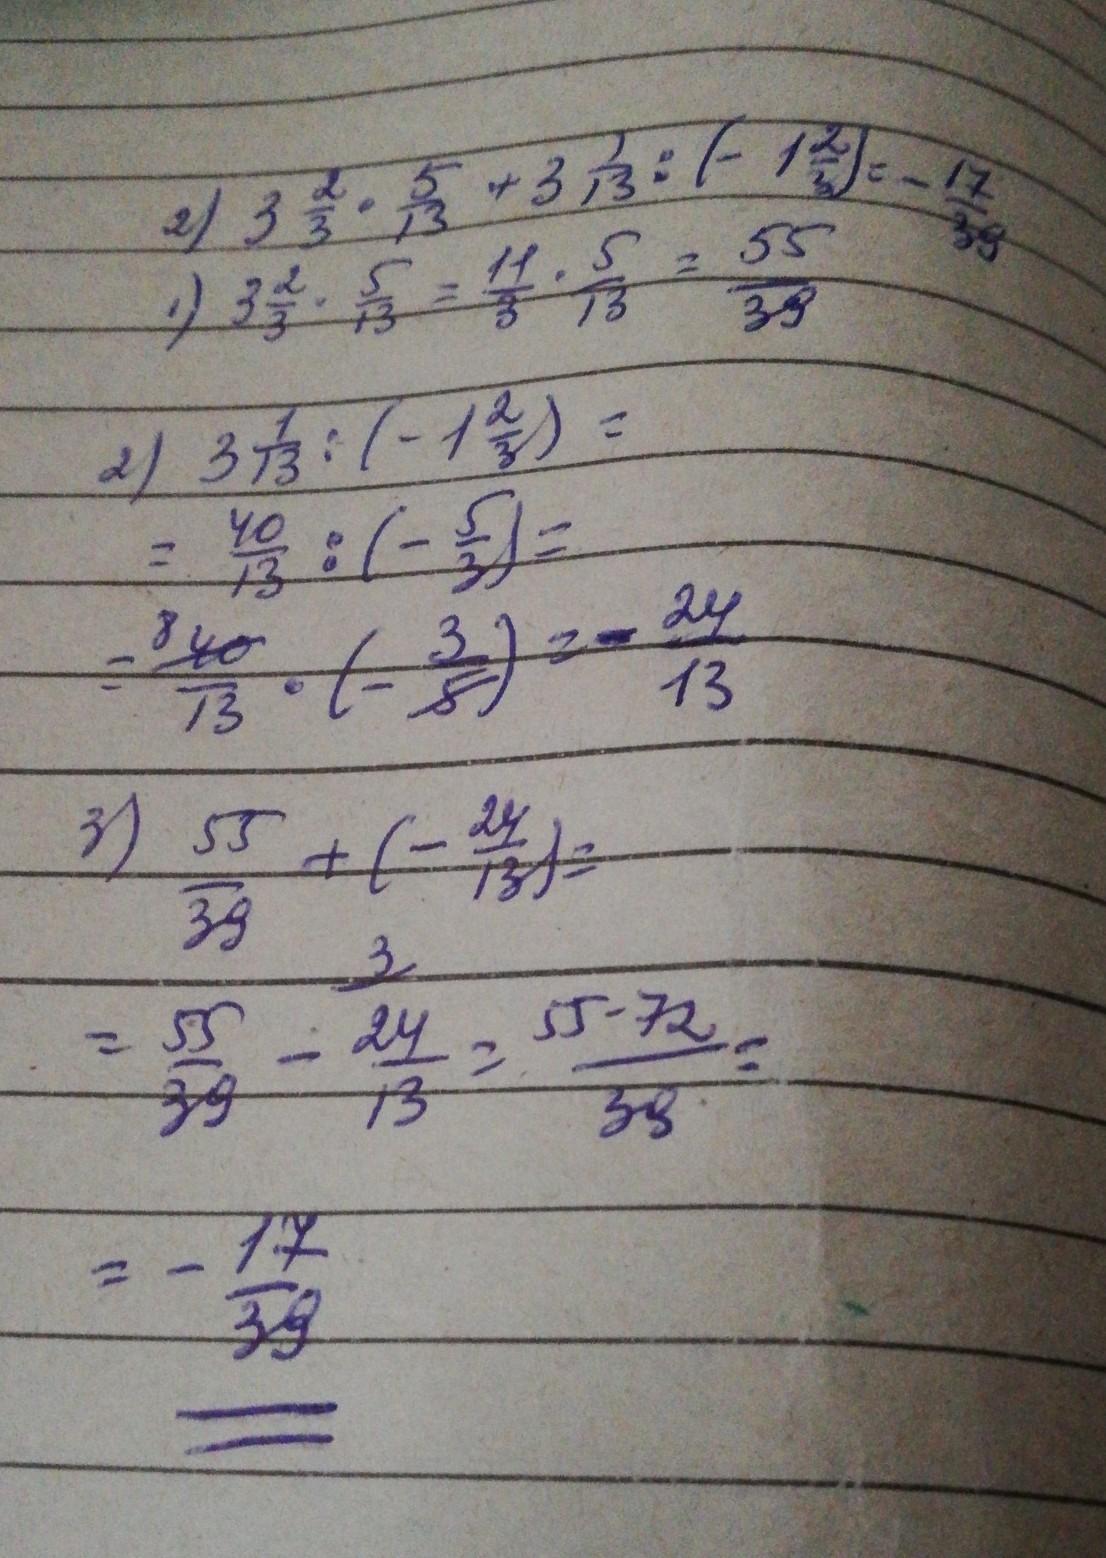 2) 3 2/3 · 5/13 + 3 1/13 : (- 1 2/3) = - 17/39
1) 3 2/3 · 5/13 = 11/3 · 5/13 = 55/39
2) 3 1/13 : (- 1 2/3) =
= 40/13 : (- 5/3) =
= 8 40/13 · (- 3/5) = - 24/13
3) 55/39 + (- 24/13) =
3
= 55/39 - 24/13 = 55-72/39 =
= - 17/39